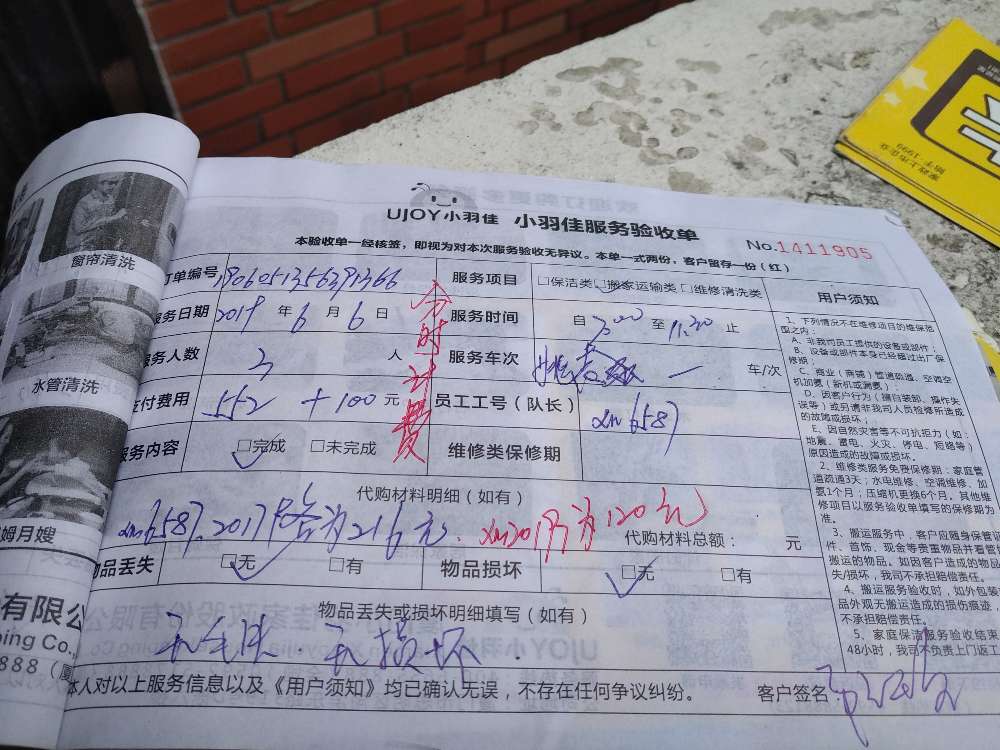 UJOY小羽佳 小羽佳服务验收单
No.1411905
本验收单一经核签，即视为对本次服务验收无异议。本单一式两份，客户留存一份（红）
订单编号
服务项目 □保洁类 □搬家运输类 □维修清洗类
服务日期 2019 年 6 月 6 日
服务时间 自 至 11:30 止
服务人数 3 人
服务车次 一 车/次
支付费用 552 + 100 元
员工工号（队长） xm6587
分时计费
服务内容 □完成 □未完成
维修类保修期
代购材料明细（如有）
xm6587.2017 各为216元. xm2019为120元
代购材料总额： 元
物品丢失 □无 □有
物品损坏 □无 □有
物品丢失或损坏明细填写（如有）
无丢失. 无损坏.
本人对以上服务信息以及《用户须知》均已确认无误，不存在任何争议纠纷。
客户签名：
用户须知
1、下列情况不在维修项目的维保范
围之内：
A、非我司员工提供的设备或部件；
B、设备或部件本身已经超过出厂保
修期；
C、商业（商铺）管道疏通、空调空
机加氟（新机或漏氟）；
D、因客户行为（擅自装卸、操作失
误等）或另请非我司人员检修所造成
的故障或损坏；
E、因自然灾害等不可抗拒力（如：
地震、雷电、火灾、停电、短路等）
原因造成的故障或损坏。
2、维修类服务免费保修期：家庭管
道疏通3天；水电维修、空调维修、加
氟1个月；压缩机更换6个月。其他维
修项目以服务验收单填写的保修期为
准。
3、搬运服务中，客户应随身保管证
件、首饰、现金等贵重物品并看管
搬运的物品。如因客户造成的物品
失/损坏，我司不承担赔偿责任。
4、搬运服务验收时，如外包装
品外观无搬运造成的损伤痕迹，
不承担赔偿责任。
5、家庭保洁服务验收结束
48小时，我司不负责上门返工
窗帘清洗
水管清洗
姆月嫂
有限公
ping Co.,
888（厦